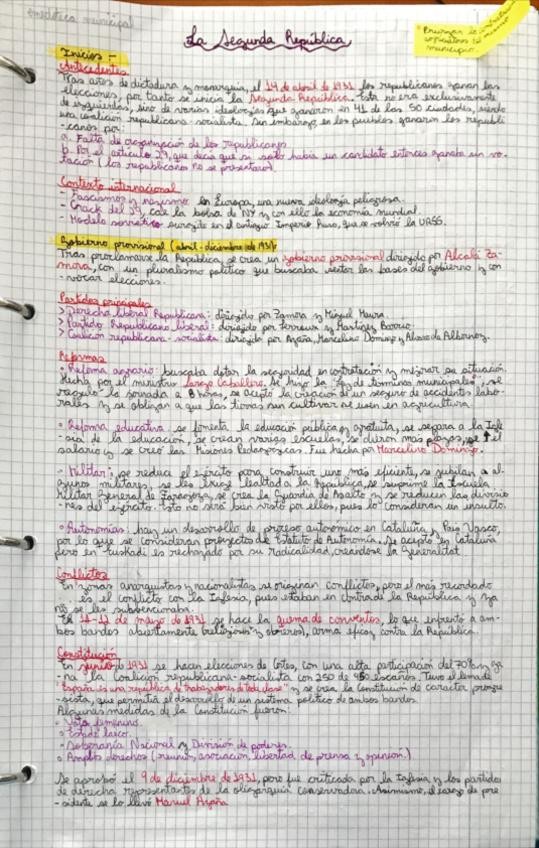 emeroteca municipal
La Segunda República
municipio.
Inicios -
Antecedentes
Tras años de dictadura y monarquía, el 14 de abril de 1931 los republicanos ganan las
elecciones, por tanto se inicia la Segunda República. Esta no era exclusivamente
de izquierdas, sino de varias ideologías que ganaron en 41 de las 50 ciudades, siendo
una coalición republicana-socialista. Sin embargo, en los pueblos ganaron los republi-
-canos por:
a. Falta de organización de los republicanos
b. Por el artículo 29, que decía que si solo había un candidato entonces ganaba sin vo-
tación (los republicanos no se presentaron).
Contexto internacional
- Fascismos y nazismo en Europa, una nueva ideología peligrosa.
- Crack del 29, cae la bolsa de NY y con ello la economía mundial.
- Modelo soviético surgido en el antiguo Imperio Ruso, que se volvió la URSS.
Gobierno provisional (abril-diciembre de 1931):
Tras proclamarse la República, se crea un gobierno provisional dirigido por Alcalá Za-
mora, con un pluralismo político que buscaba sentar las bases del gobierno y con
-vocar elecciones.
Partidos principales
> Derecha liberal Republicana: dirigido por Zamora y Miguel Maura.
> Partido Republicano liberal: dirigido por Lerroux y Martínez Barrio
> Coalición republicana-socialista: dirigido por Azaña, Marcelino Domingo y Álvaro de Albornoz.
Reformas
• Reforma agraria: buscaba dotar la seguridad en contratación y mejorar su situación
Hecha por el ministro Largo Caballero. Se hizo la "ley de términos municipales", se
reguló la jornada a 8 horas, se aceptó la creación de un seguro de accidentes labo-
rales y se obligan a que las tierras sin cultivar se usen en agricultura.
• Reforma educativa: se fomenta la educación pública y gratuita, se separa a la Igle
-sia de la educación, se crean varias escuelas, se dieron más plazas, se ↑ el
salario y se creó las Misiones Pedagógicas. Fue hecha por Marcelino Domingo.
- Militar: se reduce el ejército para construir uno más eficiente, se jubilan a al-
gunos militares, se les exige lealtad a la República, se suprime la Escuela
Militar General de Zaragoza, se crea la Guardia de Asalto y se reducen las divisio
-nes del ejército. Esto no será bien visto por ellos, pues lo consideran un insulto.
• Autonomías: hay un desarrollo de proceso autonómico en Cataluña y País Vasco,
por lo que se consideran proyectos de Estatuto de Autonomía. Se aceptó en Cataluña
pero en Euskadi es rechazado por su radicalidad, creándose la Generalitat.
Conflictos
En zonas anarquistas y nacionalistas, se originan conflictos, pero el más recordado
es el conflicto con la Iglesia, pues estaban en contra de la República y ya
no se les subvencionaba.
El 11-12 de mayo de 1931 se hace la quema de conventos, lo que enfrentó a am-
bos bandos abiertamente (religiosos y obreros), arma eficaz contra la República.
Constitución
En junio de 1931 se hacen elecciones de Cortes, con una alta participación del 70% y ga
-na la Coalición republicana-socialista con 250 de 450 escaños. Tuvo el lema de
"España es una república de trabajadores de toda clase" y se crea la Constitución de carácter progre
-sista, que permitía el desarrollo de un sistema político de ambos bandos.
Algunas medidas de la Constitución fueron:
• Voto femenino.
• Estado laico.
- Soberanía Nacional y División de poderes.
• Amplios derechos (reunión, asociación, libertad de prensa y opinión.)
Se aprobó el 9 de diciembre de 1931, pero fue criticado por la Iglesia y los partidos
de derecha representantes de la oligarquía conservadora. Asimismo, el cargo de pre
-sidente se lo llevó Manuel Azaña